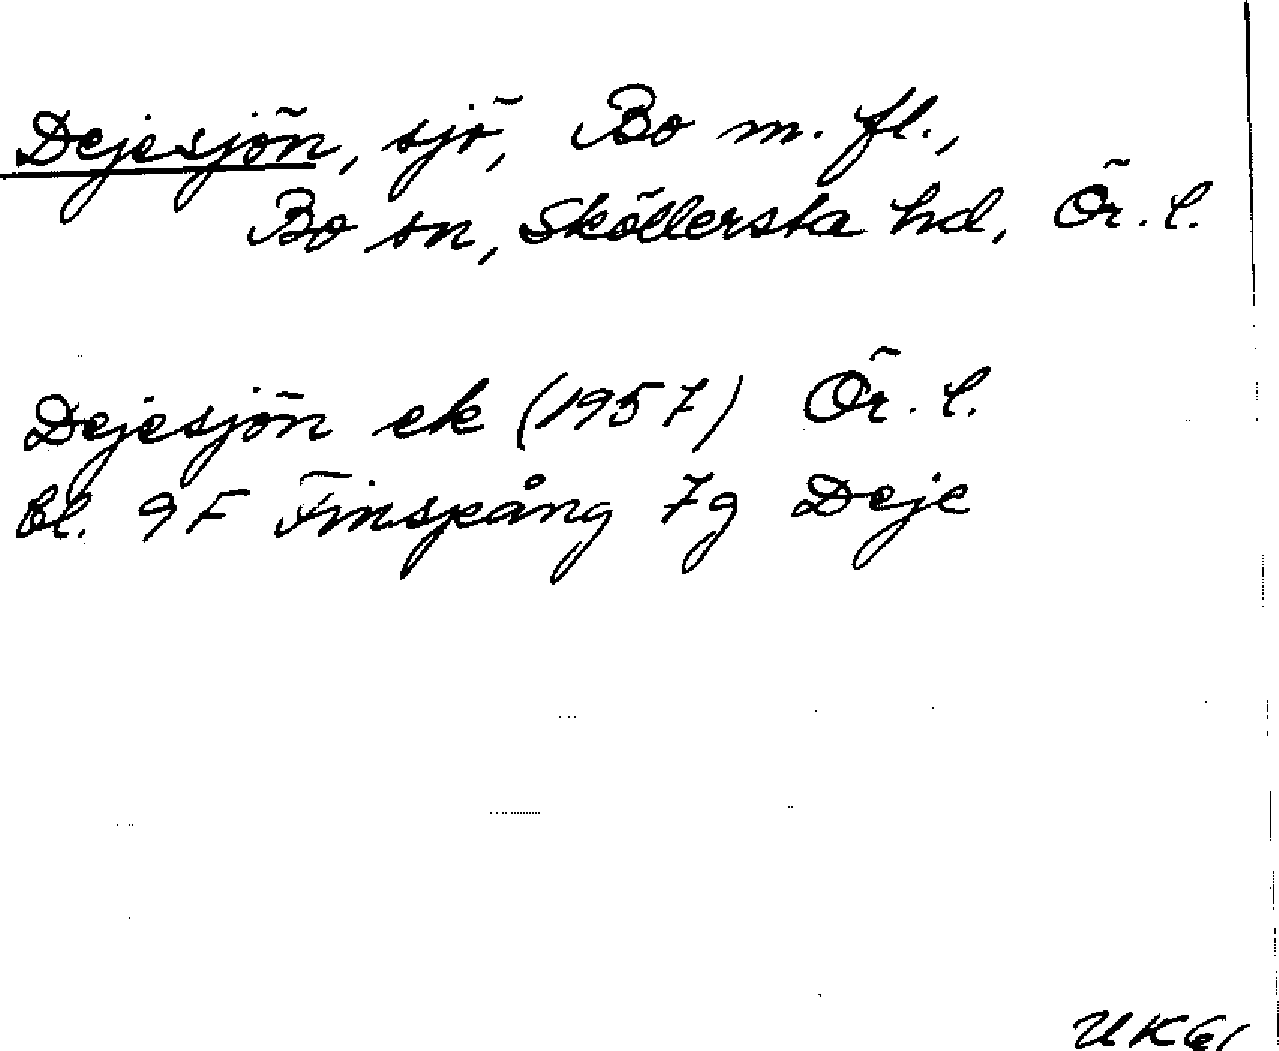 Dejesjön, sjö, Bo m. fl.,
Bo sn, Sköllersta hd, Ör. l.
Dejesjön ek (1957) Ör. l.
bl. 9F Finspång 7g Deje